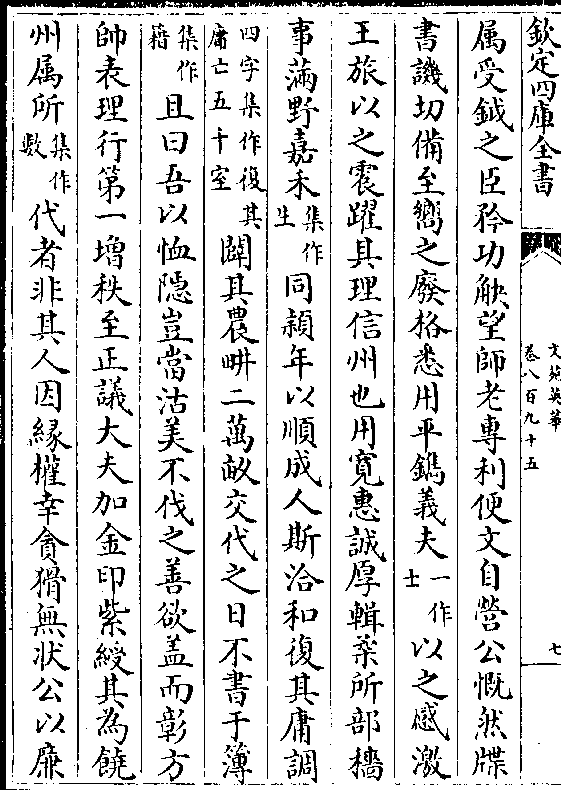 欽定四庫全書
文苑英華
卷八百九十五
七
属受鉞之臣矜功觖望師老專利便文自營公慨然牒
書譏切備至嚮之廢格悉用平鐫義夫一作士以之感激
王旅以之震躍其理信州也用寛惠誠厚輯柔所部穡
事滿野嘉禾集作生同穎年以順成人斯洽和復其庸調
四字集作復其庸亡五十室闢其農畊二萬畝交代之日不書于簿
集作籍且曰吾以恤隠豈當沽美不伐之善欲盖而彰方
帥表理行第一增秩至正議大夫加金印紫綬其為饒
州属所集作數代者非其人因緣權幸貪猾無狀公以㢘